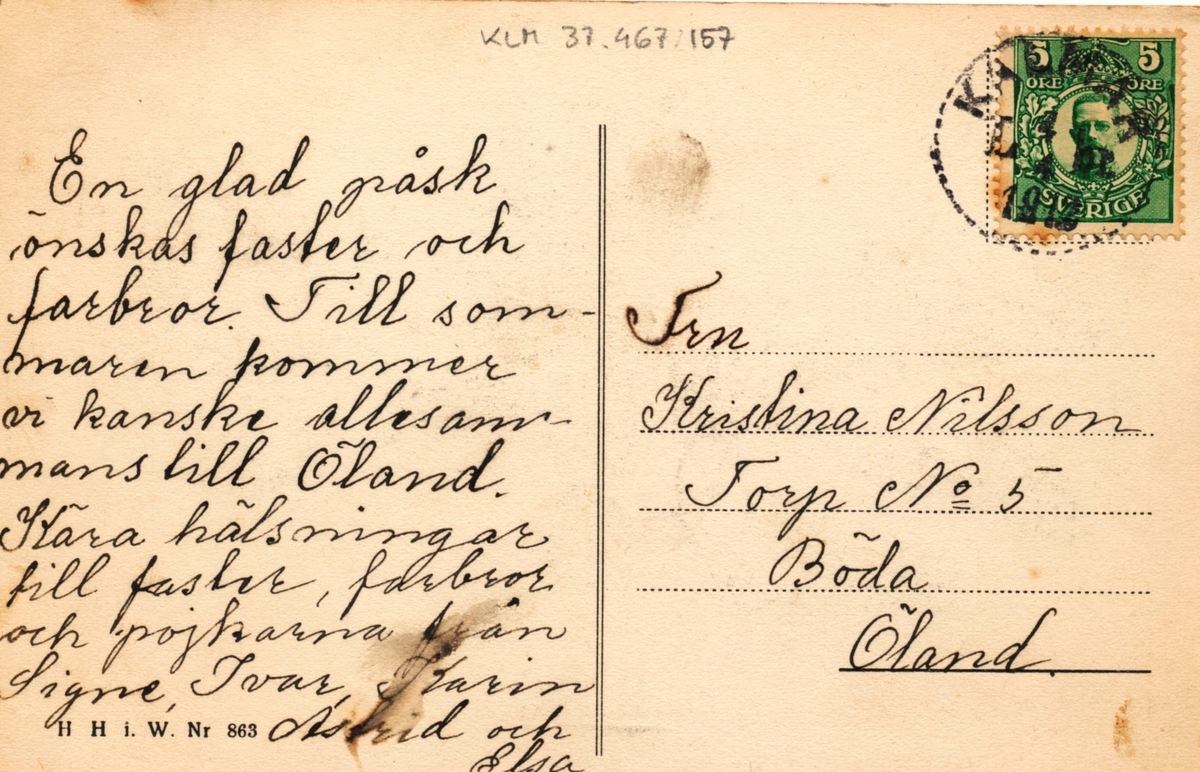 KLM 37.467/157
5 5
ÖRE ÖRE
SVERIGE
KALMAR
En glad påsk
önskas faster och
farbror. Till som-
maren kommer
vi kanske allesam-
mans till Öland.
Kära hälsningar
till faster, farbror
och pojkarna från
Signe, Ivar, Karin
Astrid och
Elsa
H H i. W. Nr 863
Fru
Kristina Nilsson
Torp No 5
Böda
Öland.